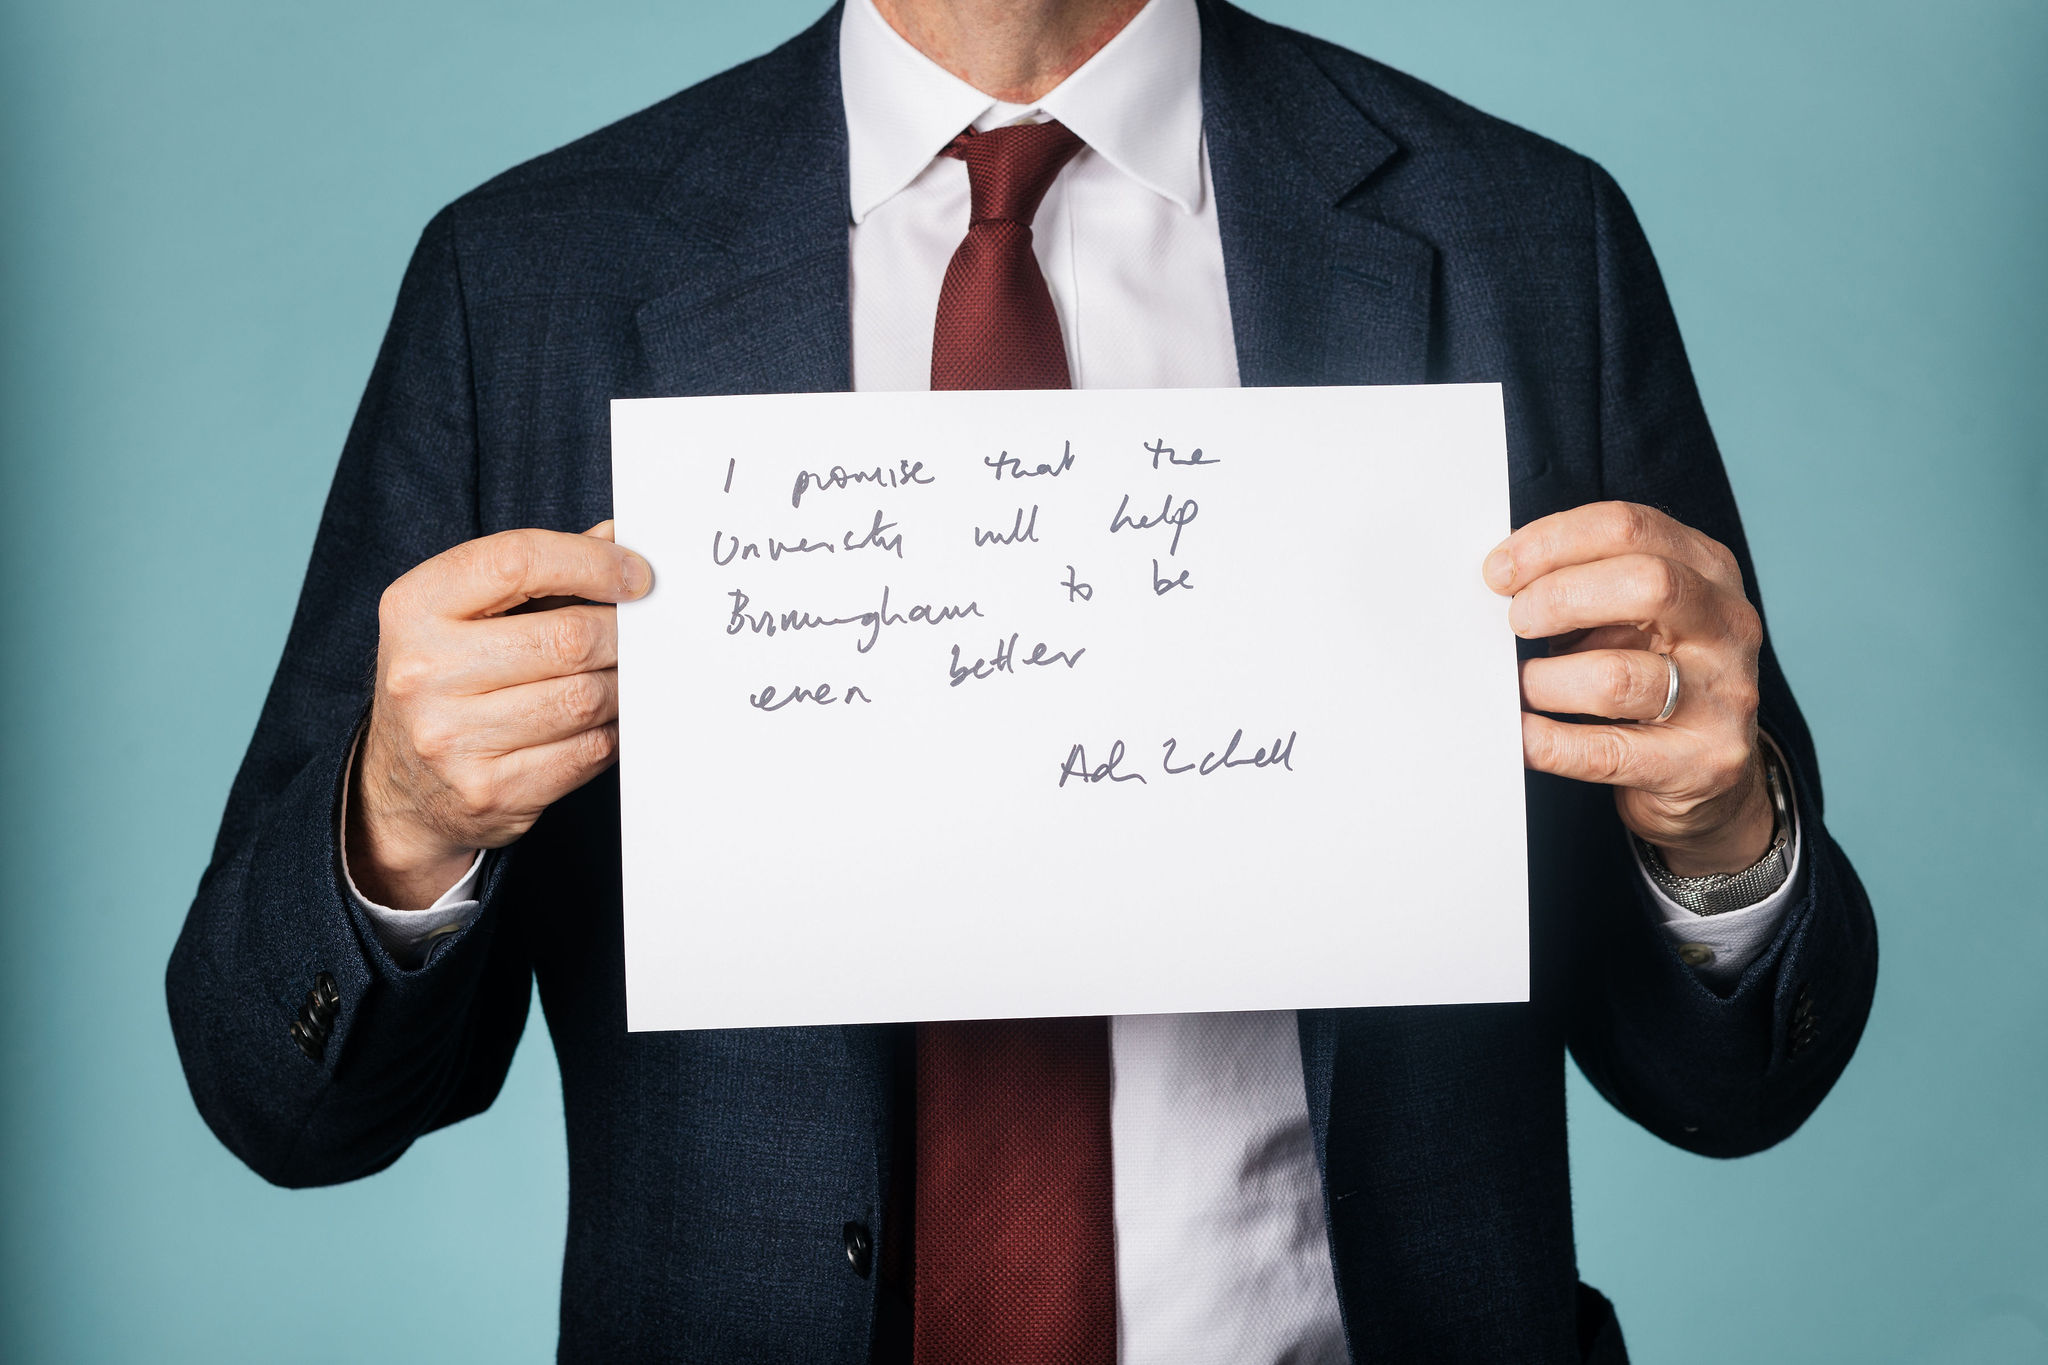 I promise that the
University will help
Birmingham to be
even better